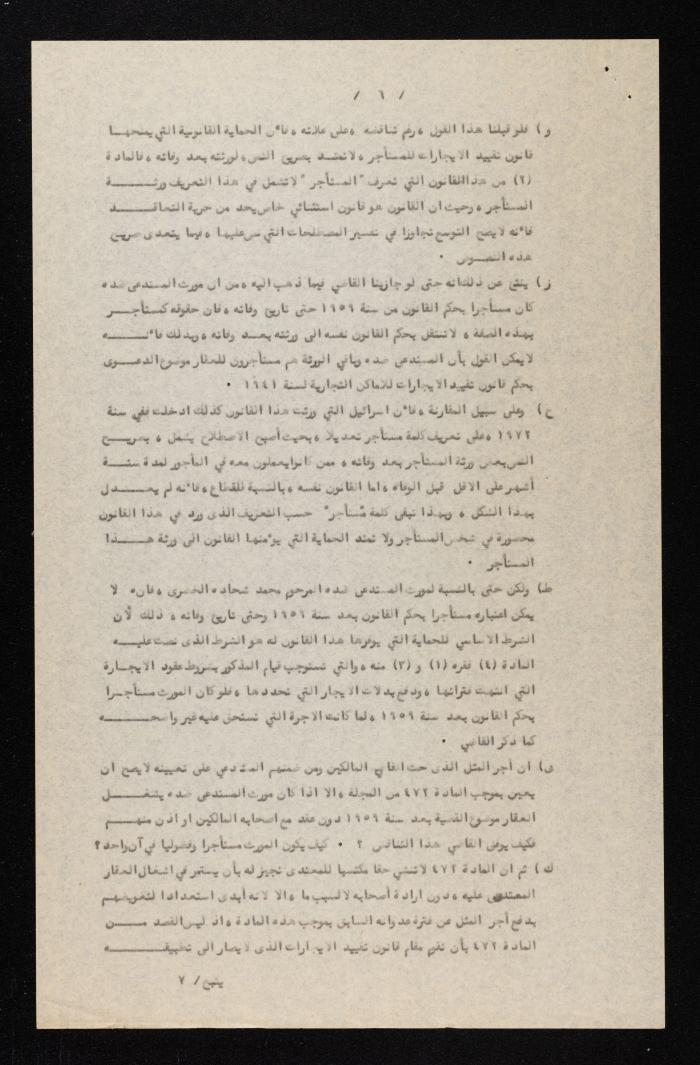 / ٦ /
و) فلو قبلنا هذا القول ، رغم تناقضه ، على علاته ، فان الحماية القانونية التي يمنحها
قانون تقييد الايجارات للمستأجر ، لا تمتد بصريح النص ، لورثته بعد وفاته ، فالمادة
(٢) من هذا القانون التي تعرف "المستأجر" لا تشمل في هذا التعريف ورثة
المستأجر ، وحيث ان القانون هو قانون استثنائي خاص يحد من حرية التعاقد
فانه لا يصح التوسع تجاوزا في تفسير المصطلحات التي نص عليها ، فيما يتعدى صريح
هذه النصوص .
ز) ينتج عن ذلك انه حتى لو جارينا القاضي فيما ذهب اليه ، من ان مورث المستدعى ضده
كان مستأجرا بحكم القانون من سنة ١٩٥٦ حتى تاريخ وفاته ، فان حقوقه كمستأجر
بهذه الصفة ، لا تنتقل بحكم القانون نفسه الى ورثته بعد وفاته ، وبذلك فانه
لا يمكن القول بأن المستدعى ضده وباقي الورثة هم مستأجرون للعقار موضوع الدعوى
بحكم قانون تقييد الايجارات للاماكن التجارية لسنة ١٩٤١ .
ح) وعلى سبيل المقارنة ، فان اسرائيل التي ورثت هذا القانون كذلك ادخلت ففي سنة
١٩٧٢ ، على تعريف كلمة مستأجر تعديلا ، بحيث أصبح الاصطلاح يشمل ، بصريح
النص بعض ورثة المستأجر بعد وفاته ، ممن كانوا يعملون معه في المأجور لمدة ستة
أشهر على الاقل قبل الوفاة ، اما القانون نفسه ، بالنسبة للقطاع ، فانه لم يعدل
بهذا الشكل ، وبهذا تبقى كلمة "مستأجر" حسب التعريف الذى ورد في هذا القانون
محصورة في شخص المستأجر ولا تمتد الحماية التي يؤمنها القانون الى ورثة هذا
المستأجر .
ط) ولكن حتى بالنسبة لمورث المستدعى ضده المرحوم محمد شحاده الخضرى ، فانه لا
يمكن اعتباره مستأجرا بحكم القانون بعد سنة ١٩٥٦ وحتى تاريخ وفاته ، ذلك لأن
الشرط الاساسي للحماية التي يوفرها هذا القانون له هو الشرط الذى نصت عليه
المادة (٤) فقره (١) و (٣) منه ، والتي تستوجب قيام المذكور بشروط عقود الايجارة
التي انتهت فتراتها ، ودفع بدلات الايجار التي تحددها ، فلو كان المورث مستأجرا
بحكم القانون بعد سنة ١٩٥٦ ، لما كانت الاجرة التي تستحق عليه غير واضحه
كما ذكر القاضي .
ى) ان أجر المثل الذى حث القاضي المالكين ومن ضمنهم المستدعي على تعيينه لا يصح ان
يعين بموجب المادة ٤٧٢ من المجلة ، الا اذا كان مورث المستدعى ضده يشغل
العقار موضوع القضية بعد سنة ١٩٥٦ دون عقد مع اصحابه المالكين او اذن منهم
فكيف يوفق القاضي هذا التناقض ؟ . كيف يكون المورث مستأجرا وفضوليا في آن واحد ؟
ك) ثم ان المادة ٤٧٢ لا تنشئ حقا مكتسبا للمعتدى تجيز له بأن يستمر في اشغال العقار
المعتدى عليه ، دون ارادة أصحابه لا لسبب ما ، الا لانه أبدى استعدادا لتعويضهم
بدفع أجر المثل عن فترة عدوانه السابق بموجب هذه المادة ، اذ ليس القصد من
المادة ٤٧٢ بأن تقوم مقام قانون تقييد الايجارات الذى لا يصار الى تطبيقه
يتبع / ٧